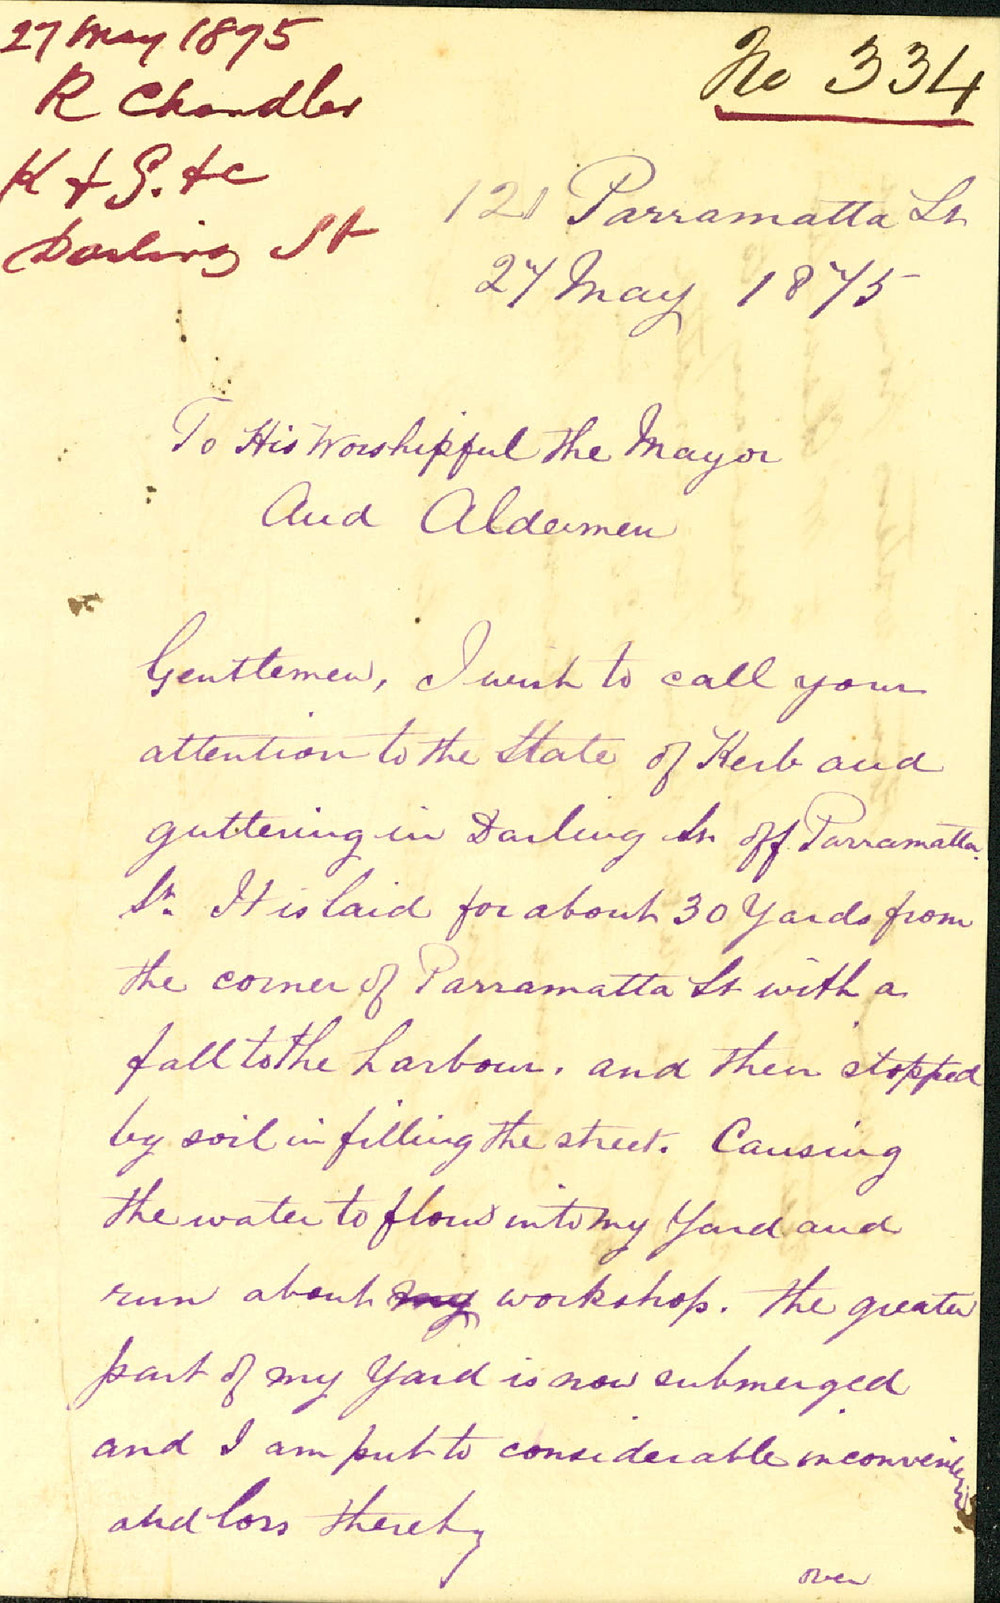 27 May 1875
R Chandler
K & G. &c
Darling St
No 334
121 Parramatta St
27 May 1875
To His Worshipful the Mayor
And Aldermen
Gentlemen, I wish to call your
attention to the State of Kerb and
guttering in Darling St. off Parramatta
St. It is laid for about 30 Yards from
the corner of Parramatta St with a
fall to the harbour. and then stopped
by soil in filling the street. Causing
the water to flow into my Yard and
run about my workshop. the greater
part of my Yard is now submerged
and I am put to considerable inconvenience
and loss thereby
over